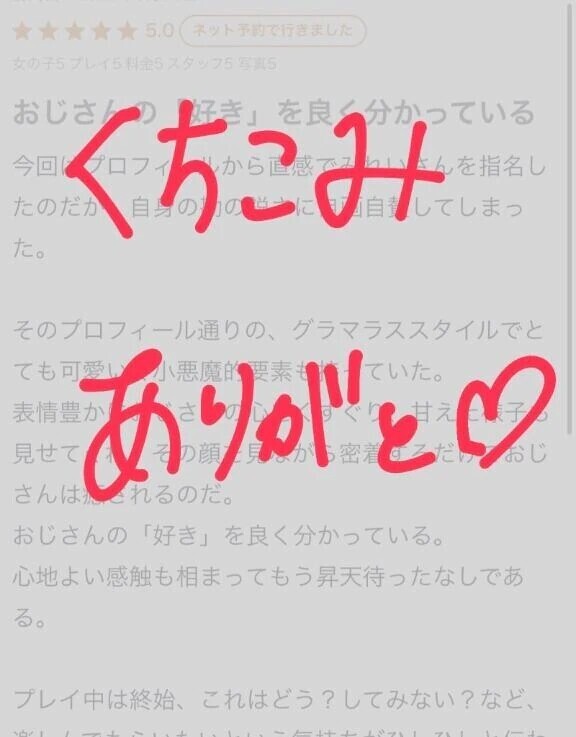 ★★★★★ 5.0 ネット予約で行きました
女の子5 プレイ5 料金5 スタッフ5 写真5
おじさんの「好き」を良く分かっている
くちこみ
今回はプロフィールから直感でみれいさんを指名し
たのだが、自身の勘の鋭さに自画自賛してしまっ
た。
そのプロフィール通りの、グラマラススタイルでと
ても可愛い、小悪魔的要素も持っていた。
ありがと♡
表情豊かにおじさんの心をくすぐり、甘えた様子も
見せてくれ、その顔を見ながら密着するだけでおじ
さんは癒されるのだ。
おじさんの「好き」を良く分かっている。
心地よい感触も相まってもう昇天待ったなしであ
る。
プレイ中は終始、これはどう？してみない？など、
楽しんでもらいたいという気持ちがひしひしと伝わ